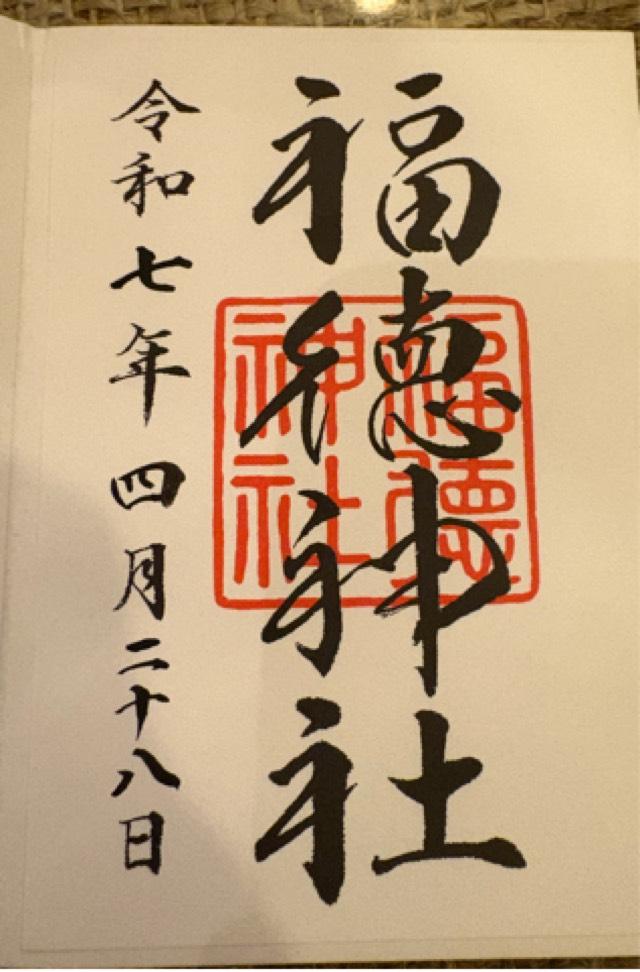 福徳神社
福徳
神社
令和七年四月二十八日